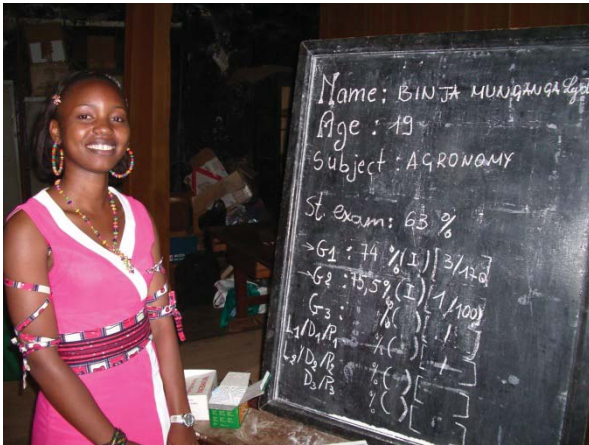 Name: BINJA MUNGANGA
Age : 19
Subject : AGRONOMY
St exam: 63 %
→G1 : 74 % (I) [3/170]
→G2 : 75,5% (I) [1/100]
G3 : % ( ) [ / ]
L1/D1/P1 % ( ) [ / ]
L2/D2/P2 % ( ) [ ]
D3/P3 % ( ) [ ]